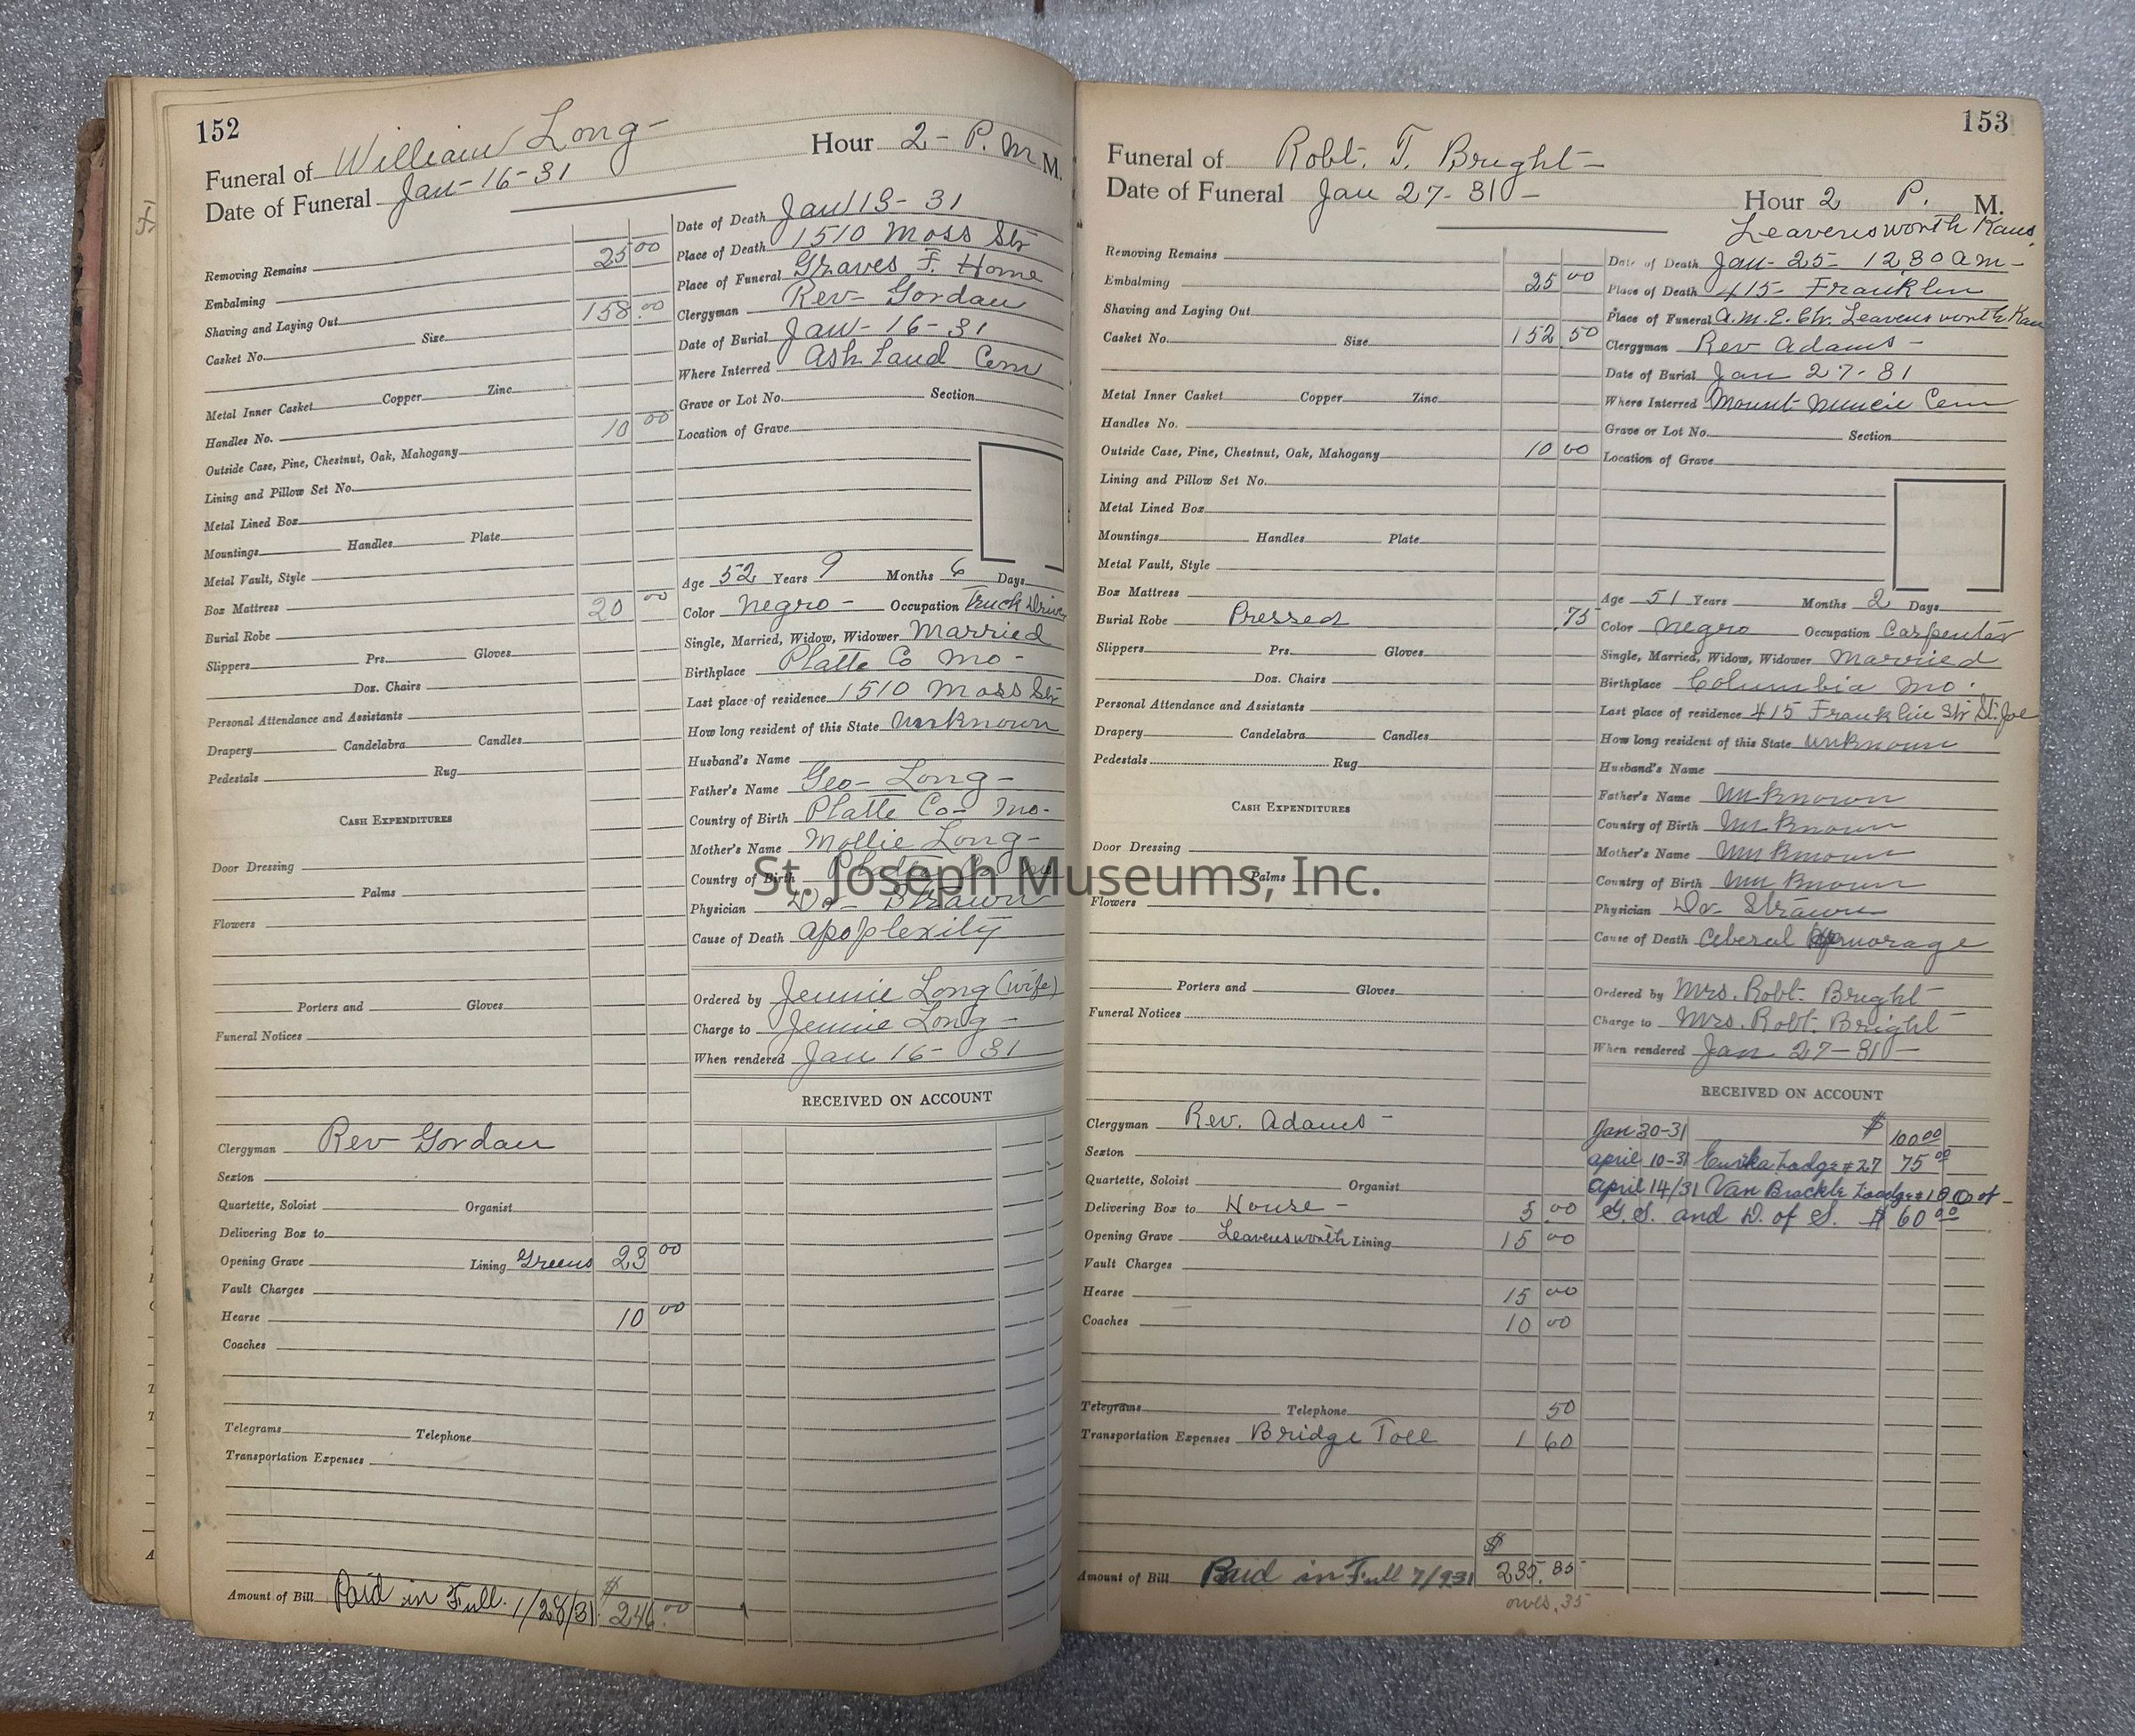 152
Funeral of William Long-
Hour 2- P. M M.
Date of Funeral Jan-16-31
Removing Remains
Embalming 25 00
Shaving and Laying Out
Casket No. Size 158.00
Metal Inner Casket Copper Zinc
Handles No.
Outside Case, Pine, Chestnut, Oak, Mahogany 10 00
Lining and Pillow Set No.
Metal Lined Box
Mountings Handles Plate
Metal Vault, Style
Box Mattress
Burial Robe 20 00
Slippers Prs. Gloves
Doz. Chairs
Personal Attendance and Assistants
Drapery Candelabra Candles
Pedestals Rug
CASH EXPENDITURES
Door Dressing
Palms
Flowers
Porters and Gloves
Funeral Notices
Clergyman Rev Gordan
Sexton
Quartette, Soloist Organist
Delivering Box to
Opening Grave Lining Greens 23 00
Vault Charges
Hearse 10 00
Coaches
Telegrams Telephone
Transportation Expenses
Amount of Bill Paid in Full. 1/28/31 $ 246.00
Date of Death Jan 13-31
Place of Death 1510 Moss Str
Place of Funeral Graves F. Home
Clergyman Rev- Gordan
Date of Burial Jan-16-31
Where Interred Ash Land Cem
Grave or Lot No. Section
Location of Grave
Age 52 Years 9 Months 6 Days
Color Negro- Occupation Truck
Single, Married, Widow, Widower Married
Birthplace Platte Co Mo-
Last place of residence 1510 Moss Str
How long resident of this State Unknown
Husband's Name
Father's Name Geo- Long-
Country of Birth Platte Co- Mo-
Mother's Name Mollie Long-
Country of Birth
Physician Dr- Strawn
Cause of Death apoplexity
Ordered by Jennie Long (wife)
Charge to Jennie Long-
When rendered Jan 16- 31
RECEIVED ON ACCOUNT
153
Funeral of Robt. T. Bright-
Date of Funeral Jan 27-31-
Hour 2 P. M.
Leavensworth Kans.
Removing Remains
Embalming 25 00
Shaving and Laying Out
Casket No. Size 152 50
Metal Inner Casket Copper Zinc
Handles No.
Outside Case, Pine, Chestnut, Oak, Mahogany 10 00
Lining and Pillow Set No.
Metal Lined Box
Mountings Handles Plate
Metal Vault, Style
Box Mattress
Burial Robe Pressed .75
Slippers Prs. Gloves
Doz. Chairs
Personal Attendance and Assistants
Drapery Candelabra Candles
Pedestals Rug
CASH EXPENDITURES
Door Dressing
Palms
Flowers
Porters and Gloves
Funeral Notices
Clergyman Rev. Adams-
Sexton
Quartette, Soloist Organist
Delivering Box to House- 5 00
Opening Grave Leavensworth Lining 15 00
Vault Charges
Hearse 15 00
Coaches 10 00
Telegrams Telephone 50
Transportation Expenses Bridge Toll 1 60
$
Amount of Bill Paid in Full 7/931 235.35
owes .35
Date of Death Jan- 25- 12,30 am-
Place of Death 415- Franklin
Place of Funeral A.M.E. Ch. Leavensworth Kan
Clergyman Rev Adams-
Date of Burial Jan 27-31
Where Interred Mount Muncie Cem
Grave or Lot No. Section
Location of Grave
Age 51 Years Months 2 Days
Color Negro Occupation Carpenter
Single, Married, Widow, Widower Married
Birthplace Columbia Mo.
Last place of residence 415 Franklin Str St. Joe
How long resident of this State Unknown
Husband's Name
Father's Name Unknown
Country of Birth Unknown
Mother's Name Unknown
Country of Birth Unknown
Physician Dr- Strawn
Cause of Death Ceberal
Ordered by Mrs. Robt. Bright
Charge to Mrs. Robt. Bright
When rendered Jan. 27-31-
RECEIVED ON ACCOUNT
Jan 30-31 $ 100 00
April 10-31 Eurika Lodge #27 75 00
April 14/31 Van Brackle
G. S. and D. of S. $ 60 00
St. Joseph Museums, Inc.